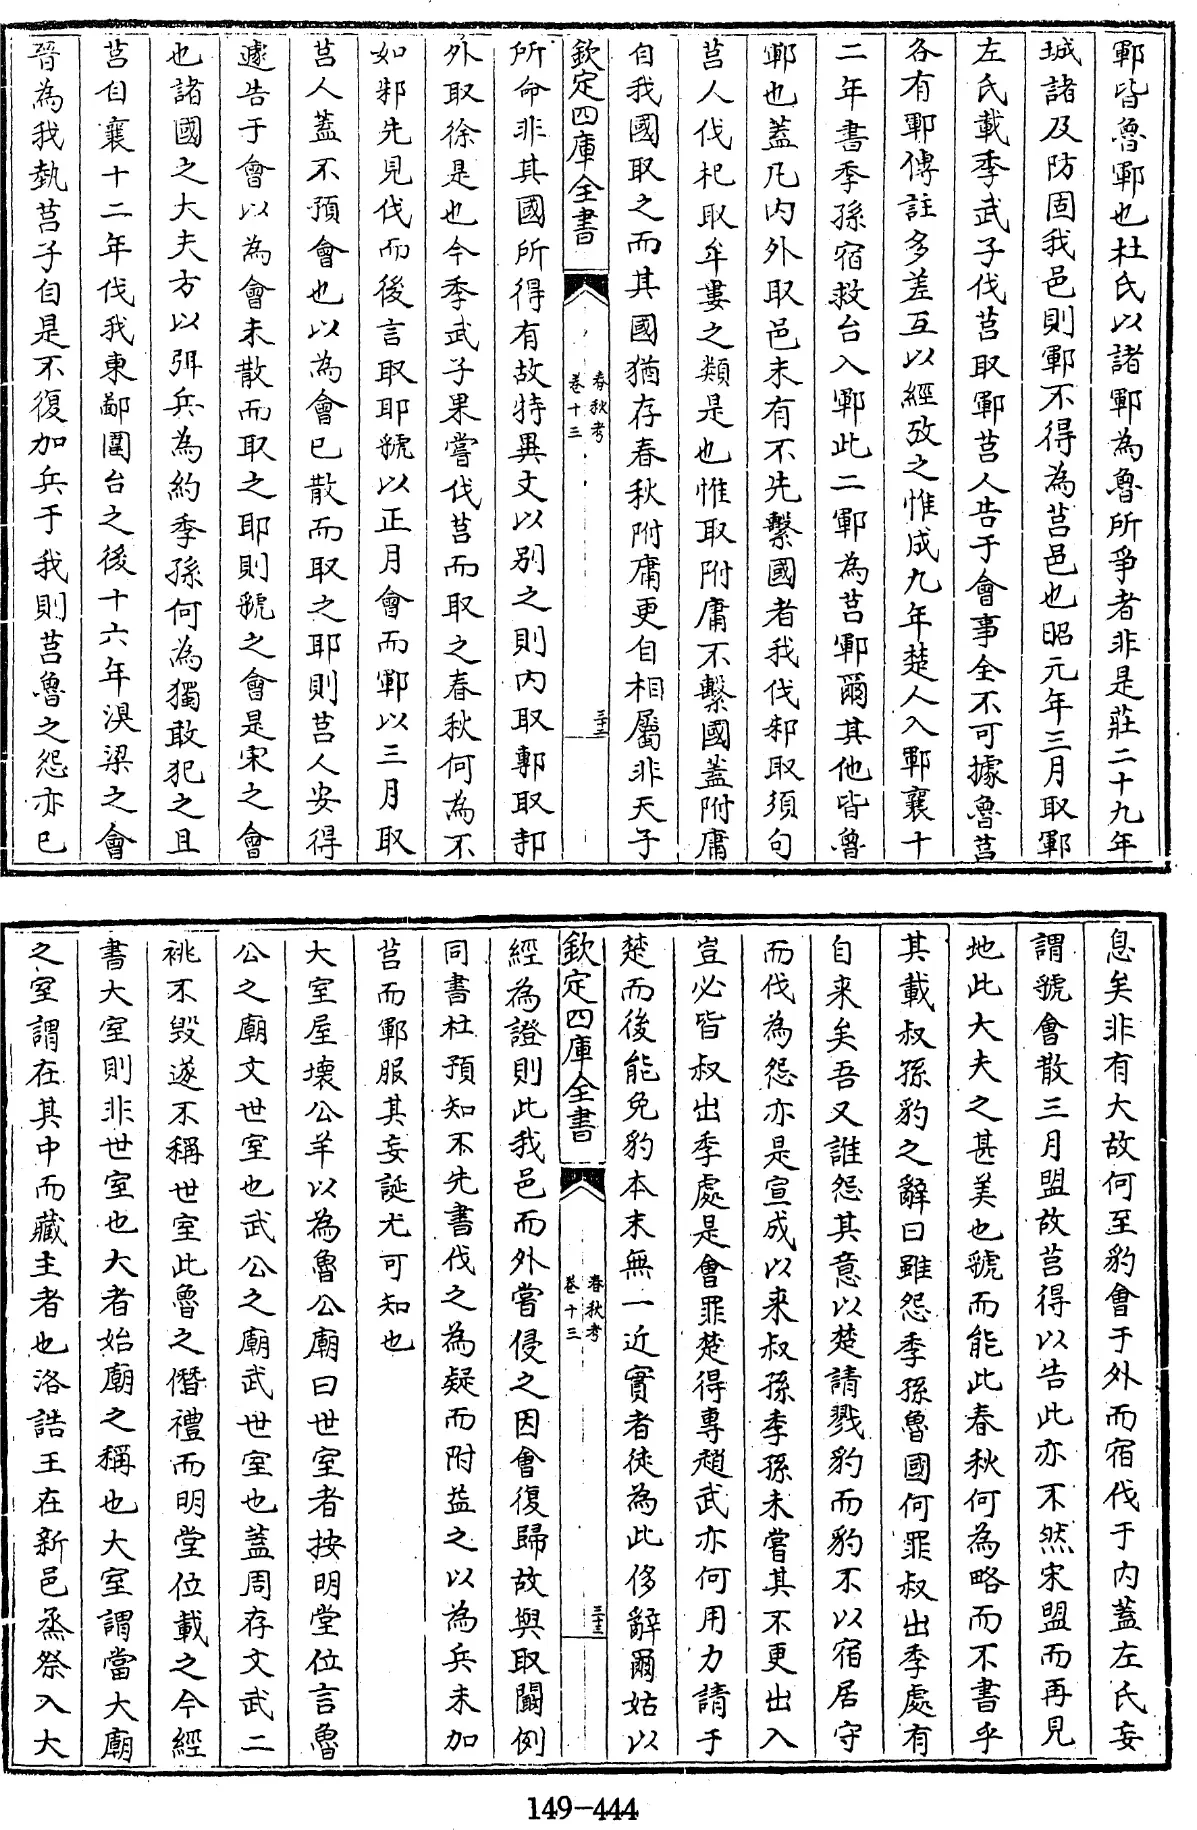 鄆皆魯鄆也杜氏以諸鄆為魯所爭者非是莊二十九年
城諸及防固我邑則鄆不得為莒邑也昭元年三月取鄆
左氏載季武子伐莒取鄆莒人告于會事全不可據魯莒
各有鄆傳註多差互以經攷之惟成九年楚人入鄆襄十
二年書季孫宿救台入鄆此二鄆為莒鄆爾其他皆魯
鄆也蓋凡内外取邑未有不先繫國者我伐邾取須句
莒人伐杞取牟婁之類是也惟取附庸不繫國蓋附庸
自我國取之而其國猶存春秋附庸更自相屬非天子
欽定四庫全書
春秋考
卷十三
三十二
所命非其國所得有故特異文以别之則内取鄟取邿
外取徐是也今季武子果嘗伐莒而取之春秋何為不
如邾先見伐而後言取耶虢以正月會而鄆以三月取
莒人蓋不預會也以為會已散而取之耶則莒人安得
遽告于會以為會未散而取之耶則虢之會是宋之會
也諸國之大夫方以弭兵為約季孫何為獨敢犯之且
莒自襄十二年伐我東鄙圍台之後十六年溴梁之會
晉為我執莒子自是不復加兵于我則莒魯之怨亦已
息矣非有大故何至豹會于外而宿伐于内蓋左氏妄
謂虢會散三月盟故莒得以告此亦不然宋盟而再見
地此大夫之甚美也虢而能此春秋何為略而不書乎
其載叔孫豹之辭曰雖怨季孫魯國何罪叔出季處有
自来矣吾又誰怨其意以楚請戮豹而豹不以宿居守
而伐為怨亦是宣成以来叔孫季孫未嘗其不更出入
豈必皆叔出季處是會罪楚得專趙武亦何用力請于
楚而後能免豹本末無一近實者徒為此侈辭爾姑以
欽定四庫全書
春秋考
卷十三
三十三
經為證則此我邑而外嘗侵之因會復歸故與取闞例
同書杜預知不先書伐之為疑而附益之以為兵未加
莒而鄆服其妄誕尤可知也
大室屋壞公羊以為魯公廟曰世室者按明堂位言魯
公之廟文世室也武公之廟武世室也蓋周存文武二
祧不毁遂不稱世室此魯之僭禮而明堂位載之今經
書大室則非世室也大者始廟之稱也大室謂當大廟
之室謂在其中而藏主者也洛誥王在新邑烝祭入大
149-444